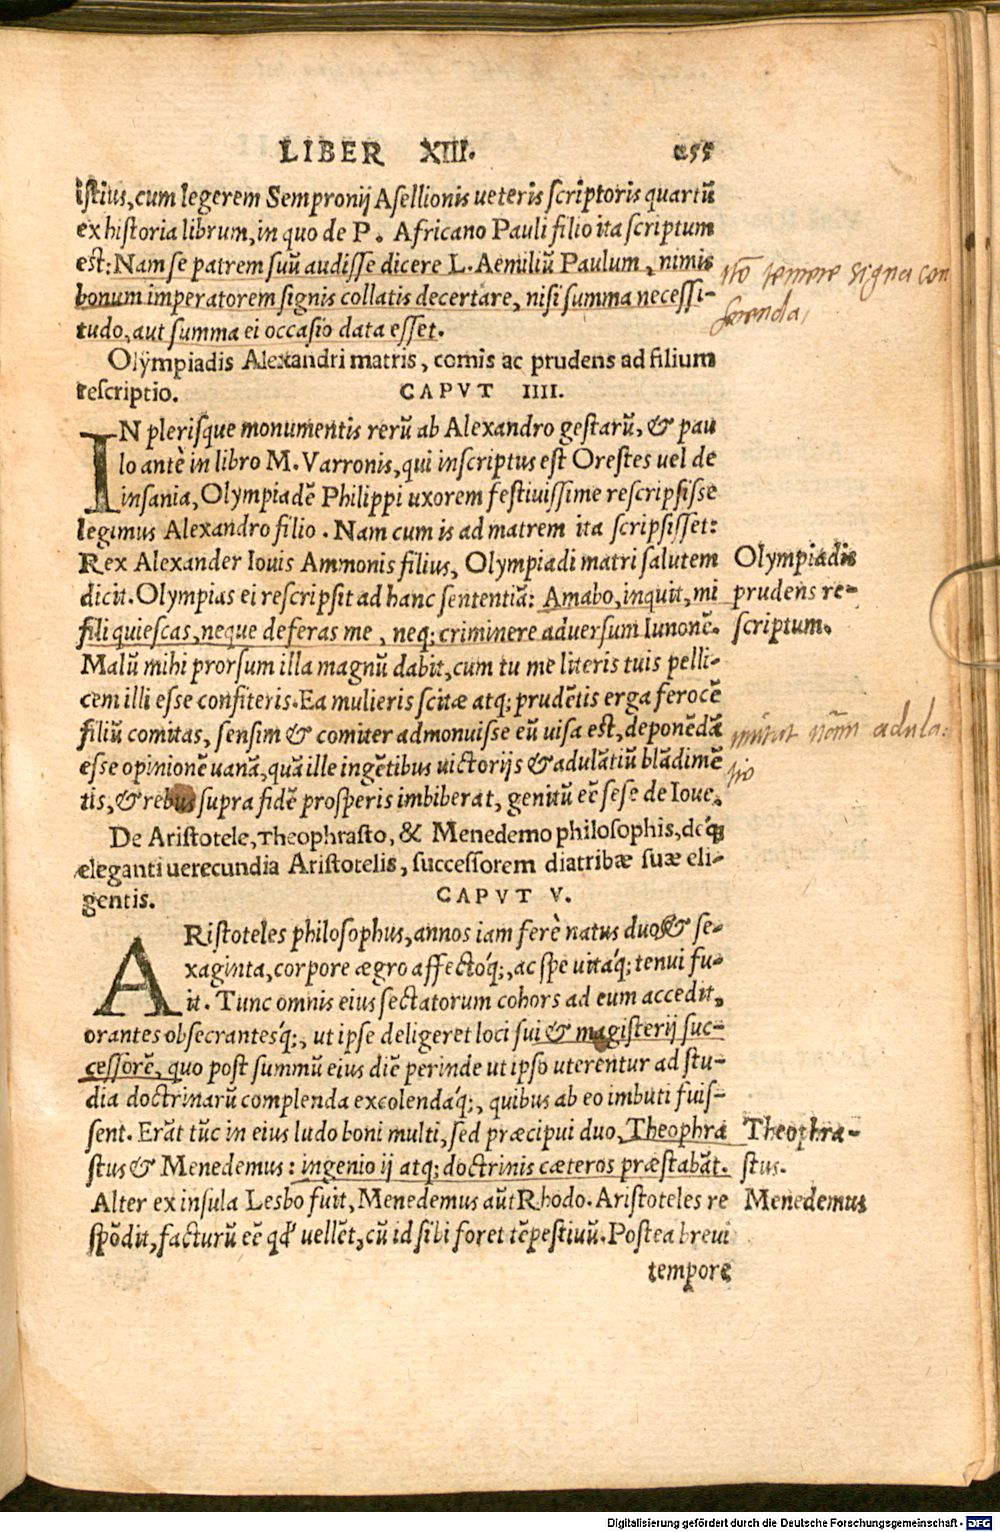 LIBER XIII. 255
istius, cum legerem Sempronij Asellionis ueteris scriptoris quartū
ex historia librum, in quo de P. Africano Pauli filio ita scriptum
est: Nam se patrem suū audisse dicere L. Aemiliū Paulum, nimis
bonum imperatorem signis collatis decertare, nisi summa necessi-
tudo, aut summa ei occasio data esset.
nō temere signa con
serenda,
Olympiadis Alexandri matris, comis ac prudens ad filium
rescriptio. CAPVT IIII.
IN plerisque monumentis rerū ab Alexandro gestarū, & pau
lo antè in libro M. Varronis, qui inscriptus est Orestes uel de
insania, Olympiadē Philippi uxorem festiuissime rescripsisse
legimus Alexandro filio. Nam cum is ad matrem ita scripsisset:
Rex Alexander Iouis Ammonis filius, Olympiadi matri salutem
dicit. Olympias ei rescripsit ad hanc sententiā: Amabo, inquit, mi
fili quiescas, neque deferas me, neq; criminere aduersum Iunonē.
Olympiadis
prudens re-
scriptum.
Malū mihi prorsum illa magnū dabit, cum tu me literis tuis pelli-
cem illi esse confiteris. Ea mulieris scitæ atq; prudētis erga ferocē
filiū comitas, sensim & comiter admonuisse eū uisa est, deponēdā
esse opinionē uanā, quā ille ingētibus uictorijs & adulātiū blādimē
tis, & rebus supra fidē prosperis imbiberat, genitū eē sese de Ioue.
adula-
tio
De Aristotele, Theophrasto, & Menedemo philosophis, deq́;
eleganti uerecundia Aristotelis, successorem diatribæ suæ eli-
gentis. CAPVT V.
ARistoteles philosophus, annos iam ferè natus duo & se-
xaginta, corpore ægro affectoq́;, ac spe uitæq́; tenui fu-
it. Tunc omnis eius sectatorum cohors ad eum accedit,
orantes obsecrantesq́;, ut ipse deligeret loci sui & magisterij suc-
cessorē, quo post summū eius diē perinde ut ipso uterentur ad stu-
dia doctrinarū complenda excolendaq́;, quibus ab eo imbuti fuis-
sent. Erāt tūc in eius ludo boni multi, sed præcipui duo, Theophra
stus & Menedemus: ingenio ij atq; doctrinis cæteros præstabāt.
Alter ex insula Lesbo fuit, Menedemus aūt Rhodo. Aristoteles re
spōdit, facturū eē qđ uellēt, cū id sibi foret tēpestiuū. Postea breui
Theophra-
stus.
Menedemus
tempore
Digitalisierung gefördert durch die Deutsche Forschungsgemeinschaft - DFG